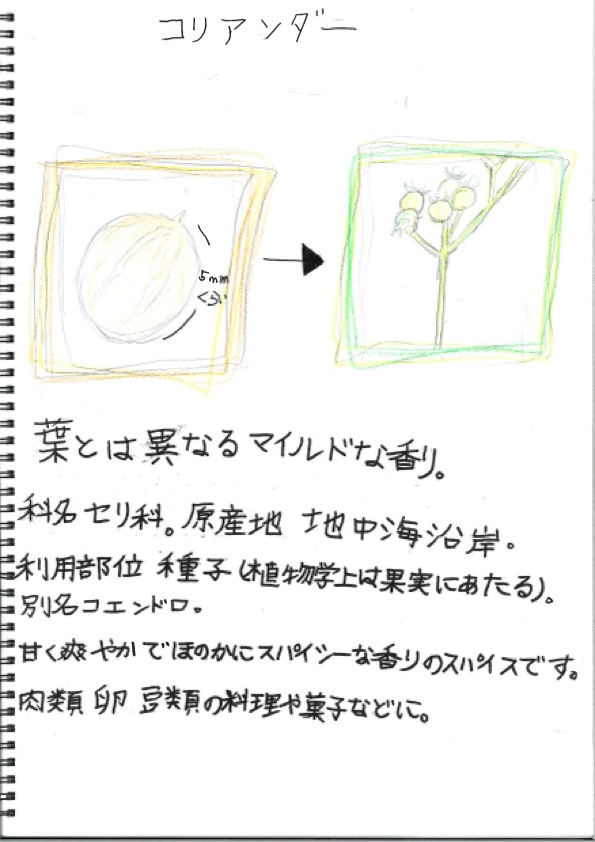 コリアンダー
5mm
くらい
葉とは異なるマイルドな香り。
科名 セリ科。原産地 地中海沿岸。
利用部位 種子(植物学上は果実にあたる)。
別名コエンドロ。
甘く爽やかでほのかにスパイシーな香りのスパイスです。
肉類 卵 豆類の料理や菓子などに。